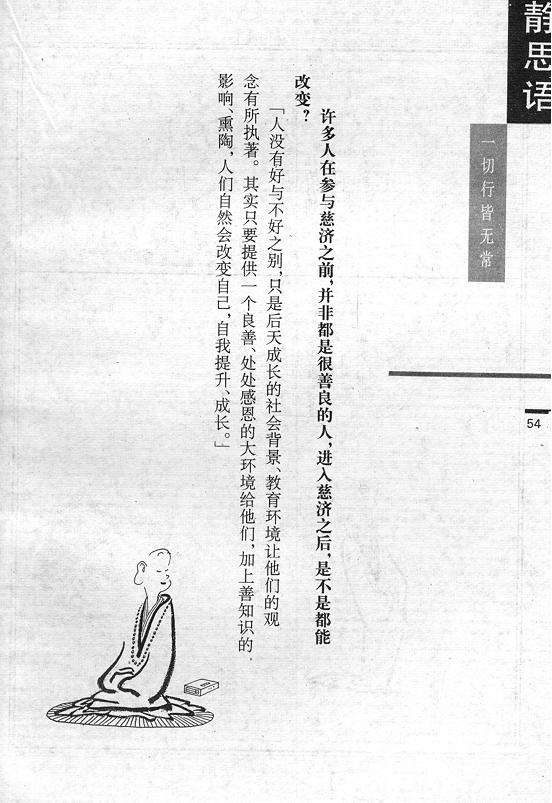 静思语
一切行皆无常
54
许多人在参与慈济之前，并非都是很善良的人，进入慈济之后，是不是都能
改变？
「人没有好与不好之别，只是后天成长的社会背景、教育环境让他们的观
念有所执著。其实只要提供一个良善、处处感恩的大环境给他们，加上善知识的
影响、熏陶，人们自然会改变自己，自我提升、成长。」